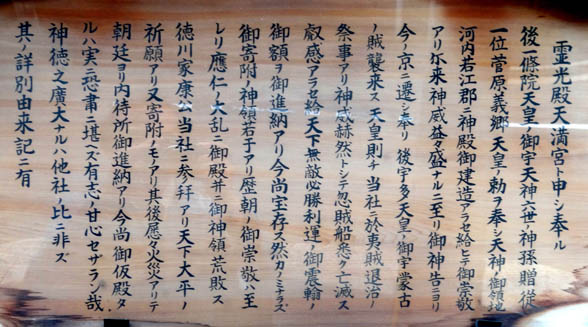 霊光殿天満宮ト申シ奉ル
後一條院天皇ノ御宇天神六世ノ神孫贈従
一位菅原義郷天皇ノ勅ヲ奉シ天神ノ御領地
河内若江郡ニ神殿御建造アラセ給ヒテ御崇敬
アリ尓来神威益々盛ナルニ至リ御神告ニヨリ
今ノ京ニ遷シ奉リ後宇多天皇ノ御宇蒙古
ノ賊襲来ス天皇則チ当社ニ於夷賊退治ノ
祭事アリ神威赫然トシテ忽賊船悉ク亡滅ス
叡感アラセ給天下無敵必勝利運ノ御震翰ノ
御額ノ御進納アリ今尚宝存ス然カノミナラズ
御寄附ノ神領若于アリ歴朝ノ御崇敬ノ至
レリ應仁ノ大乱ニ御殿并ニ御神領荒敗ス
徳川家康公当社ニ参拜アリ天下大平ノ
祈願アリ又寄附ノモノアリ其後愿々火災アリテ
朝廷ヨリ内待所御進納アリ今尚御仮殿タ
ルハ実ニ恐肅ニ堪ヘズ有志ノ甘心セザラン哉
神徳之廣大ナルハ他社ノ比ニ非ズ
其ノ詳別由来記ニ有